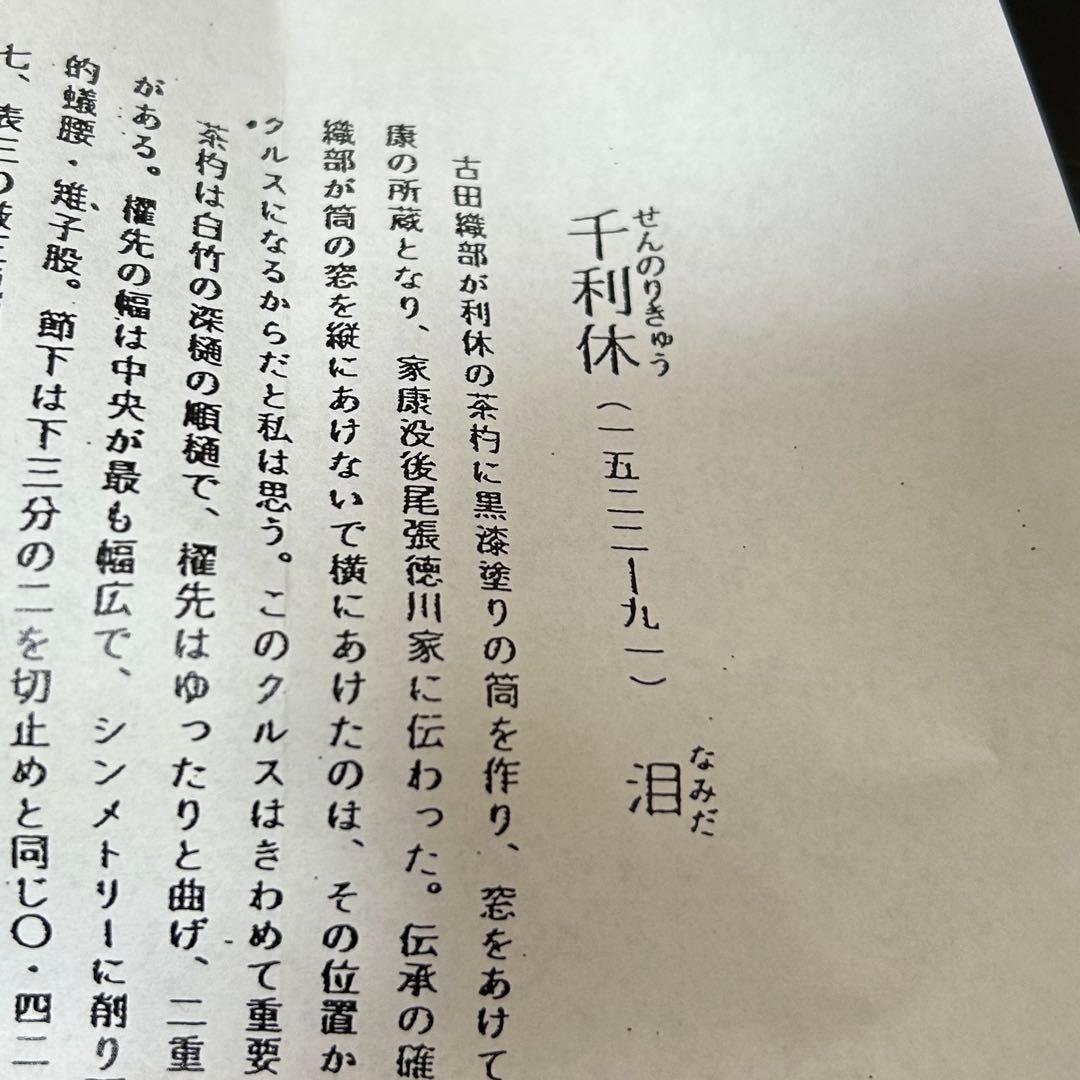 せんのりきゅう
千利休(一五二二ー九一)
なみだ
泪
古田織部が利休の茶杓に黒漆塗りの筒を作り、窓をあけて
康の所蔵となり、家康没後尾張徳川家に伝わった。伝承の確
織部が筒の窓を縦にあけないで横にあけたのは、その位置か
クルスになるからだと私は思う。このクルスはきわめて重要
茶杓は白竹の深樋の順樋で、櫂先はゆったりと曲げ、二重
がある。櫂先の幅は中央が最も幅広で、シンメトリーに削り
的蟻腰・雉子股。節下は下三分の二を切止めと同じ〇・四二
七、表三〇